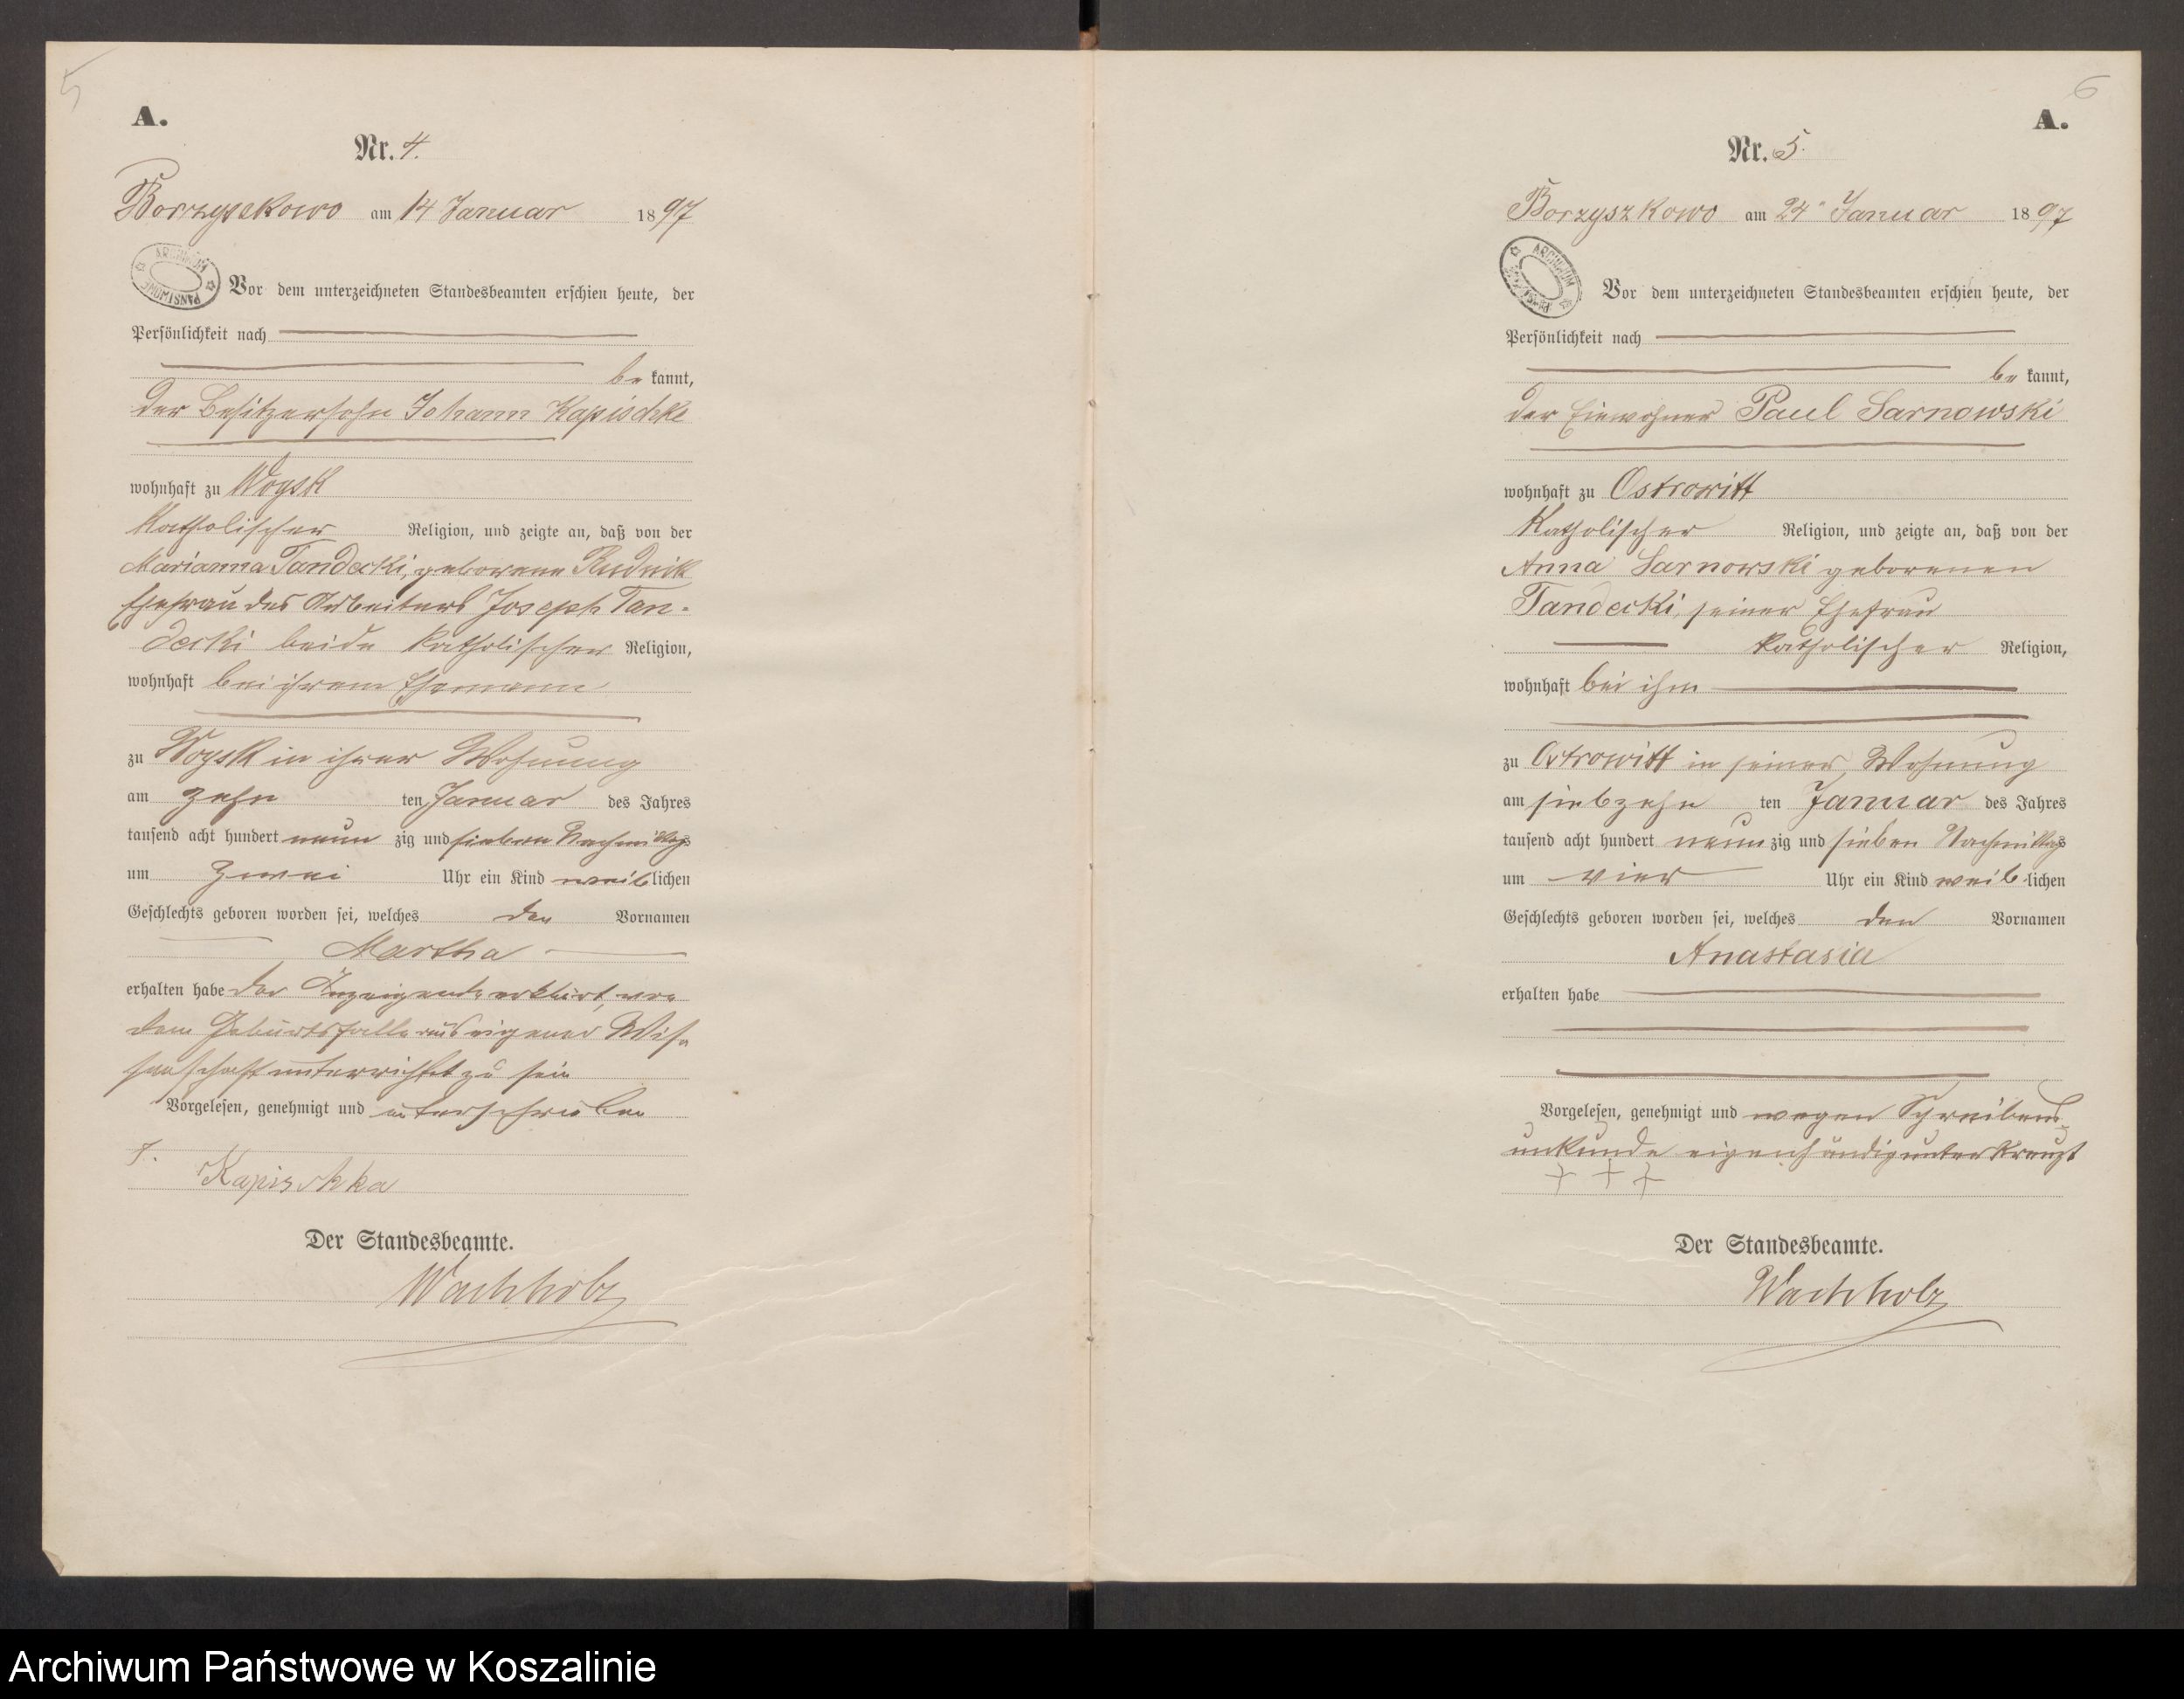 5
A.
Nr. 4.
Borzyszkowo am 14 Januar 1897
ARCHIWUM PAŃSTWOWE
Vor dem unterzeichneten Standesbeamten erschien heute, der
Persönlichkeit nach
be kannt,
der Besitzersohn Johann Kapischke
wohnhaft zu Woysk
Katholischer Religion, und zeigte an, daß von der
Marianna Tandecki, geborene Rudnik
Ehefrau des Arbeiters Joseph Tan-
decki beide katholischer Religion,
wohnhaft bei ihrem Ehemann
zu Woysk in ihrer Wohnung
am zehn ten Januar des Jahres
tausend acht hundert neun zig und sieben Nachmittags
um zwei Uhr ein Kind weiblichen
Geschlechts geboren worden sei, welches den Vornamen
Martha
erhalten habe der Anzeigende erklärt, von
dem Geburtsfalle aus eigener Wis-
senschaft unterrichtet zu sein
Vorgelesen, genehmigt und unterschrieben
J.
Kapischka
Der Standesbeamte.
Wachholz
6
A.
Nr. 5.
Borzyszkowo am 24" Januar 1897
ARCHIWUM
Vor dem unterzeichneten Standesbeamten erschien heute, der
Persönlichkeit nach
be kannt,
der Einwohner Paul Sarnowski
wohnhaft zu Ostrowitt
Katholischer Religion, und zeigte an, daß von der
Anna Sarnowski geborenen
Tandecki, seiner Ehefrau
katholischer Religion,
wohnhaft bei ihm
zu Ostrowitt in seiner Wohnung
am siebzehn ten Januar des Jahres
tausend acht hundert neun zig und sieben Nachmittags
um vier Uhr ein Kind weib lichen
Geschlechts geboren worden sei, welches den Vornamen
Anastasia
erhalten habe
Vorgelesen, genehmigt und wegen Schreibens-
unkunde eigenhändig unterkreuzt
+ + +
Der Standesbeamte.
Wachholz
Archiwum Państwowe w Koszalinie